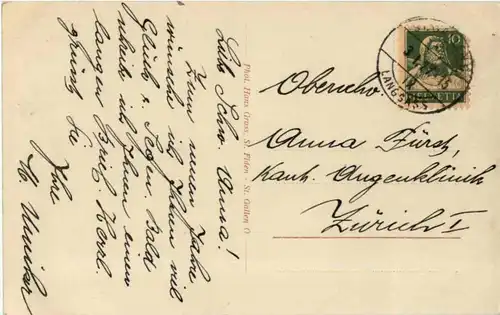 Lieb. Schw. Anna!
Zum neuen Jahre
wünsche ich Ihnen viel
Glück & Segen. Bald
schreibe ich Ihnen einen
langen Brief. Herzl.
grüsst Sie
Ihre
Phot. Hans Gross, St. Fiden - St. Gallen O
10
HELVETIA
LANGG
Oberschw.
Anna Fürst,
Kant. Augenklinik
Zürich I